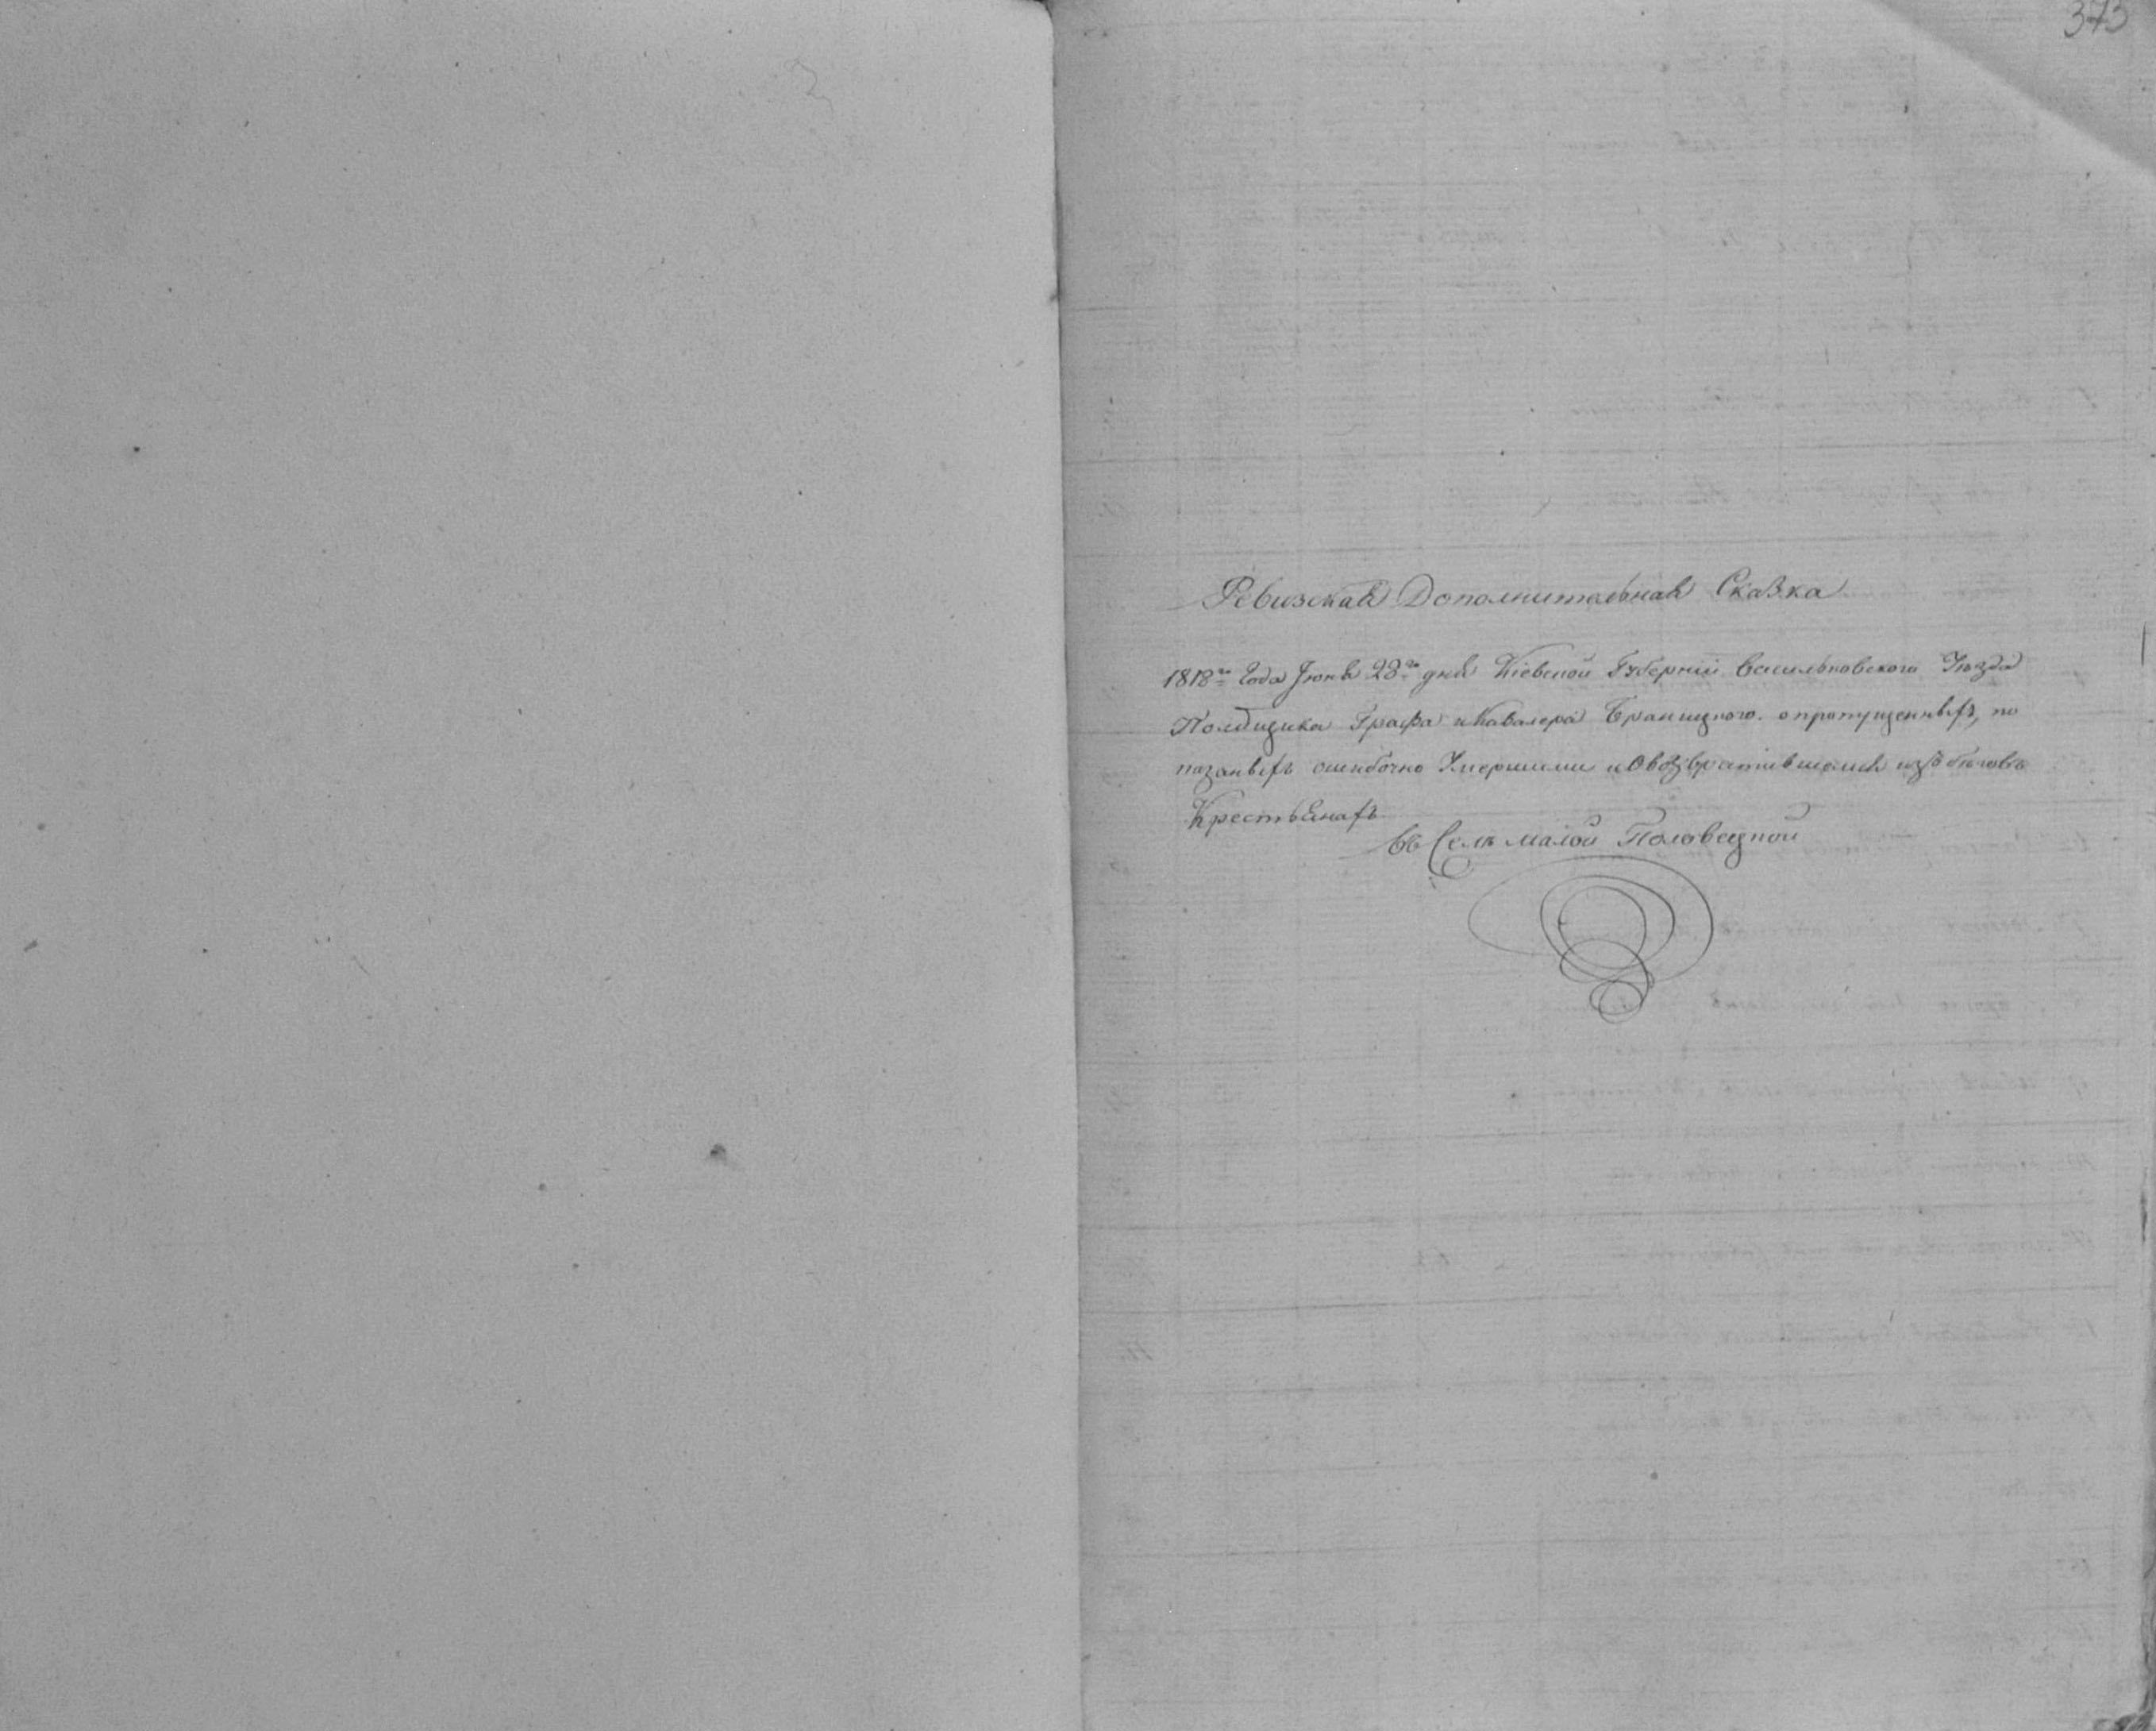 373
Ревизская Дополнительная Сказка
1818го Года Июня 28го дня Кіевской Губерніи Васильковского Уѣзда
Помещика Графа и Кавалера Браницкого. о пропущенныхъ, по
казаныхъ ошибочно Умершими и Овозвратившемся изъ беговъ
Крестьянахъ
Въ Селѣ малой Половецкой